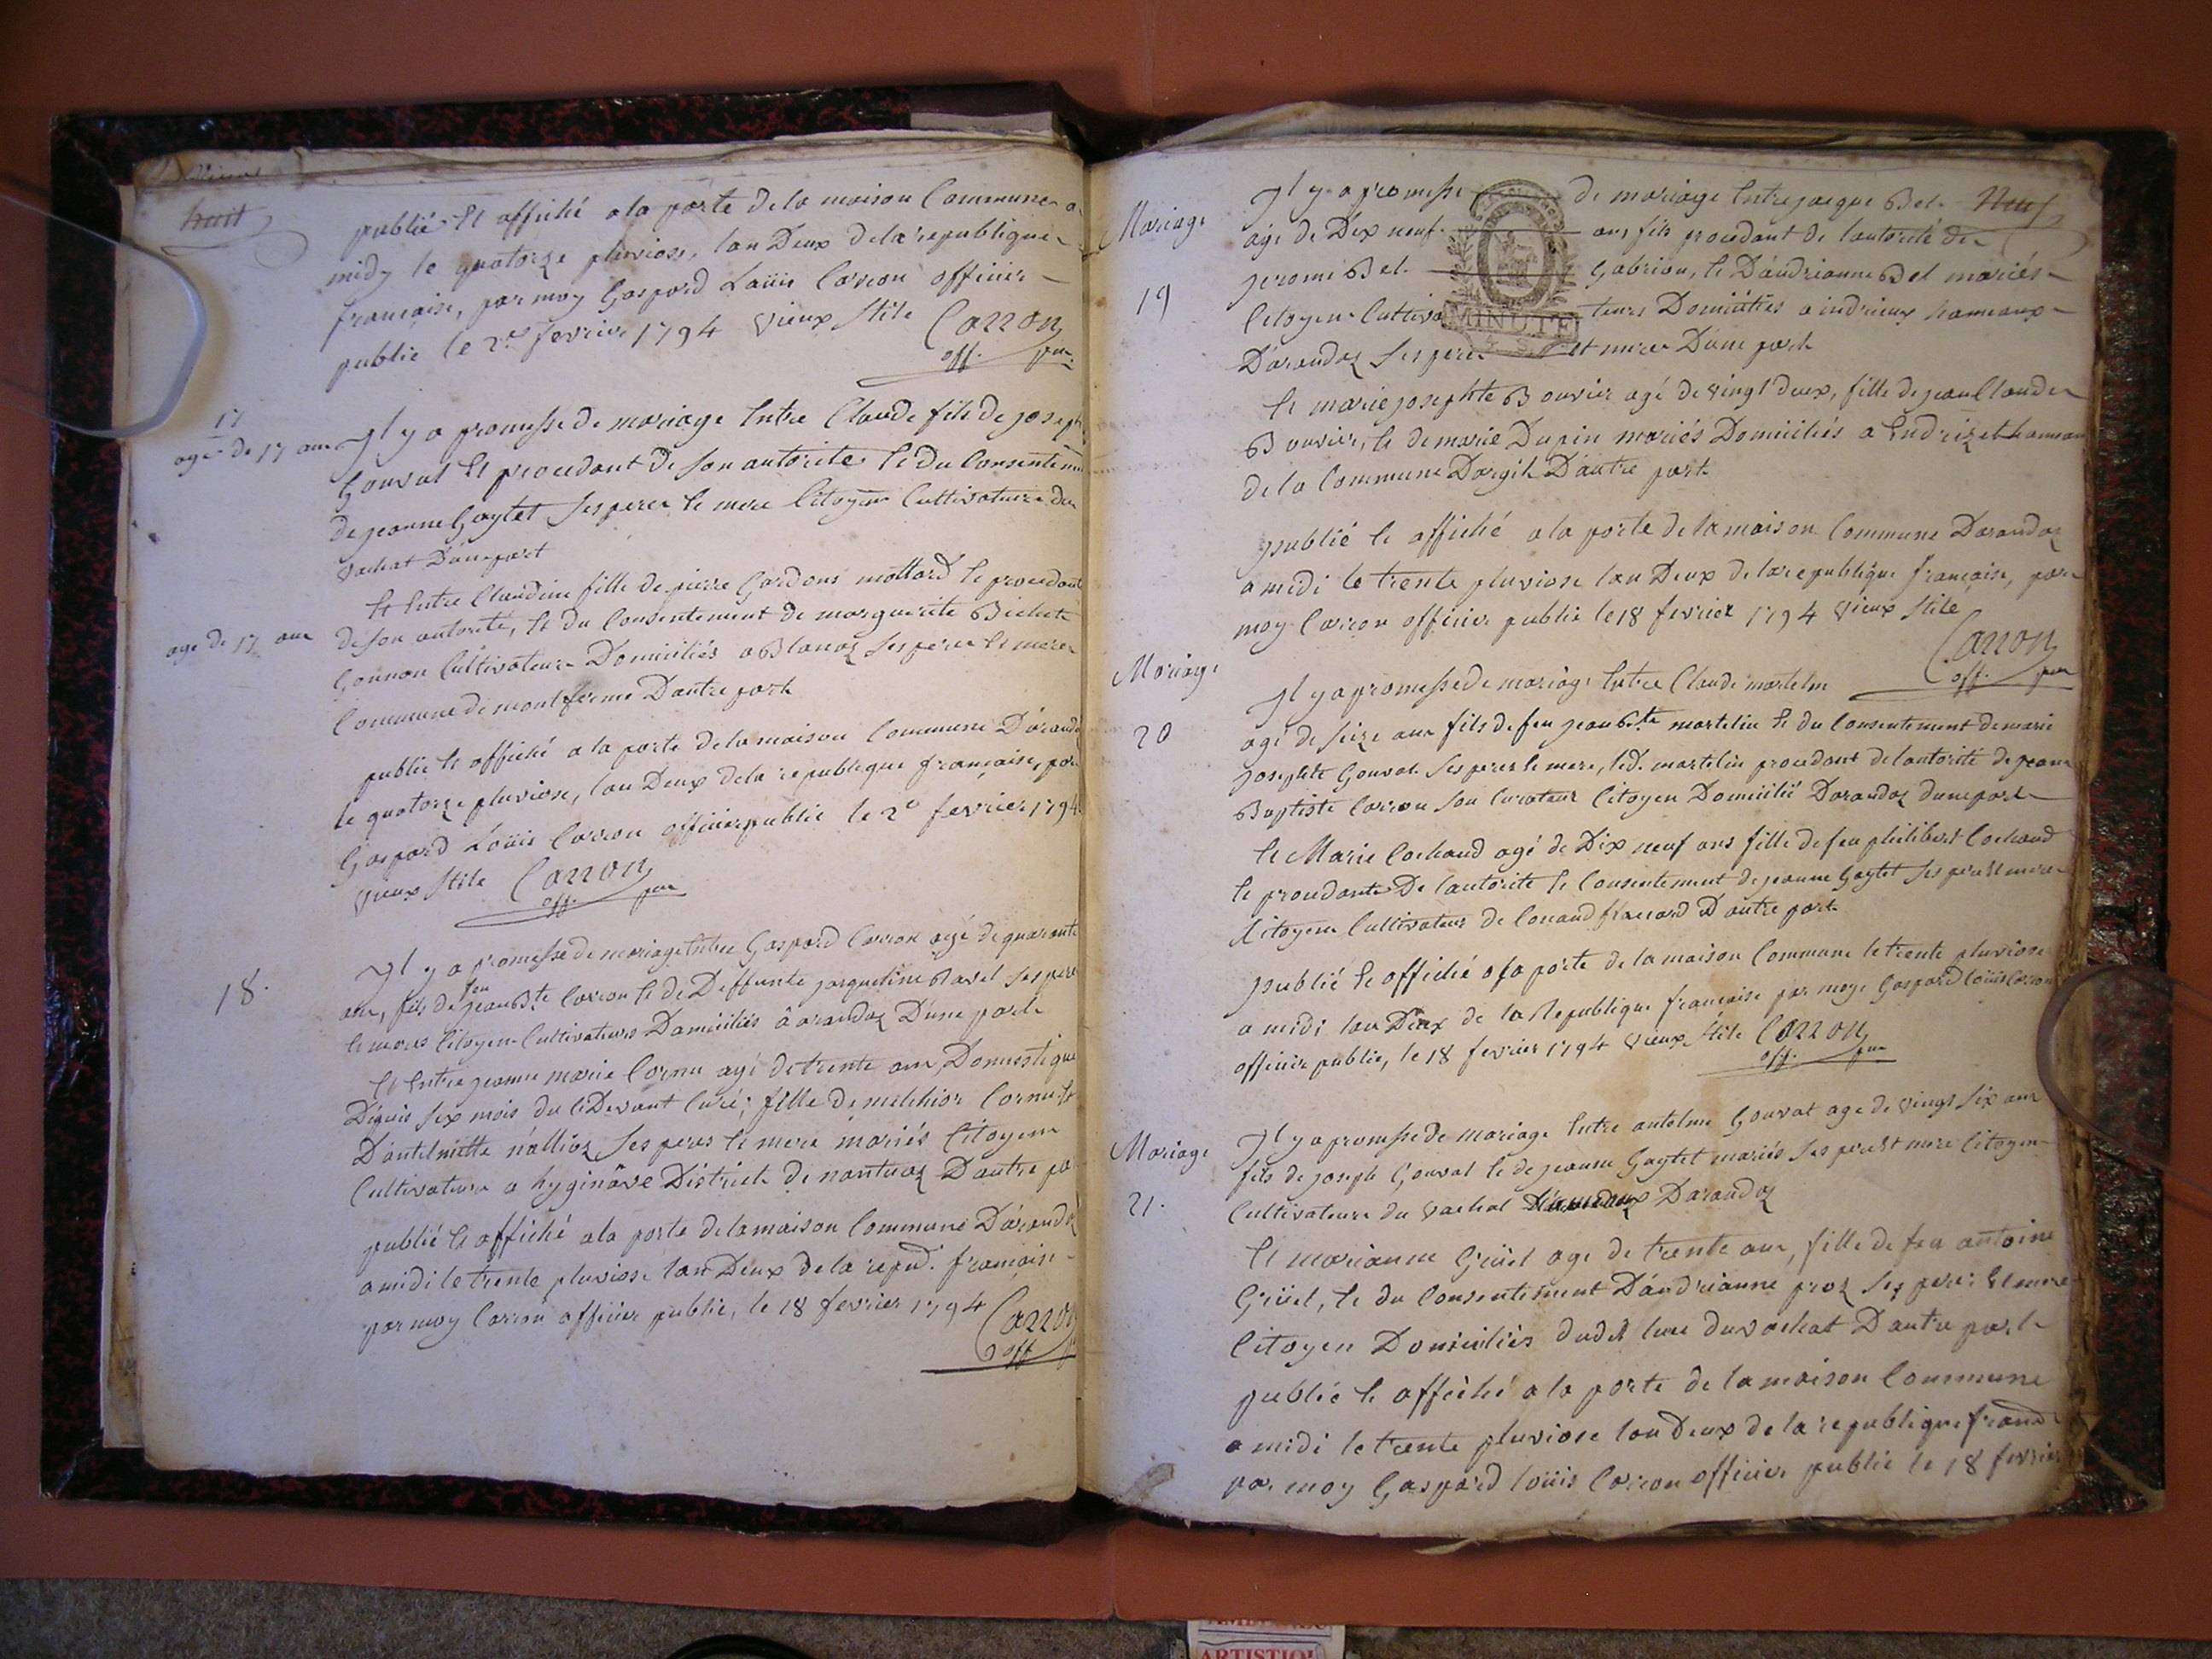 huit
publié et affiché a la porte de la maison Commune a
midy le quatorze pluviose, lan Deux de la republique
francaise, par moy Gaspard Loüis Carron officier
public le 2e fevrier 1794 vieux Stile Carron
off. pu.
17
age de 17 ans Il y a promesse de mariage Entre Claude fils de joseph
Gouvat Et procedant de son autorite Et du Consentement
de jeanne Gaytet Ses peres Et mere Citoyens Cultivateurs du
vachat D'une part
Et Entre Claudine fille de pierre Gardons mottard Et procedant
age de 17 ans de son autorité, Et du Consentement de marguerite Bichet
Gounon Cultivateurs Domiciliés a Blanaz Ses peres Et meres
Commune de montferme D'autre part
publié Et affiché a la porte de la maison Commune D'arandaz
le quatorze pluviose, lan Deux de la republique francaise, par
Gaspard Loüis Carron officier public le 2e fevrier 1794
vieux Stile Carron
off. pu.
18.
Il y a promesse de mariage Entre Gaspard Carron agé de quarante
ans, fils de feu jean Bte Carron Et de Deffunte jacqueline Ravel Ses peres
Et meres Citoyens Cultivateurs Domiciliés â arandaz D'une part
Et Entre jeanne marie Cornu agé de trente ans, Domestique
Dépuis Six mois du ci Devant Curé, fille de melchior Cornu Et
D'antelmette nallioz Ses peres Et mere mariés Citoyens
Cultivateurs a hyginâve District de nantuaz D'autre pa
publié Et affiché a la porte de la maison Commune D'arandaz
a midi le trente pluviose lan Deux de la repub. francaise
par moy Carron officier public, le 18 fevrier 1794 Carron
off
Mariage
Il y a promesse de mariage Entre jacque Bel Neuf
agé de Dix neuf ans fils procedant de lautorité de
MINUTE
19
jerome Bel Gabrion, Et D'andrianne Bel mariés
Citoyens Cultivateurs Domiciliés a indrieux hameaux
D'arandaz Ses peres et meres D'une part
Et marie josephte Bouvier agé de vingt deux, fille de jean Claude
Bouvier, Et de marie Dupin mariés Domiciliés a Endrizet hameau
de la Commune Dargit D'autre part
publié Et affiché a la porte de la maison Commune Darandaz
a midi le trente pluviose lan Deux de la republique francaise, par
moy Carron officier public le 18 fevrier 1794 vieux Stile
Carron
off. pu
Mariage
Il y a promesse de mariage Entre Claude martelin
20
agé de Seize ans fils de feu jean Bte martelin Et du Consentement de marie
josephte Gouvat Ses peres Et mere, led. martelin procedant de lautorité de jean
Baptiste Carron Son Curateur Citoyen Domicilié Darandaz d'une part
Et Marie Cochaud agé de Dix neuf ans fille de feu philibert Cochaud
Et procedante De lautorite Et Consentement de jeanne Gaytet Ses peres Et mere
Citoyens Cultivateurs de Conand D'autre part
publié Et affiché a la porte de la maison Commune le trente pluviose
a midi lan Deux de la Republique francaise par moy Gaspard loüis Carron
officier public, le 18 fevrier 1794 vieux Stile Carron
off. pu
Mariage
Il y a promesse de mariage Entre antelme Gouvat age de vingt Six ans
fils de joseph Gouvat Et de jeanne Gaytet mariés Ses peres Et mere Citoyens
21.
Cultivateurs du vachat Darandaz
Et marianne Griiel age de trente ans, fille de feu antoine
Griiel, Et du Consentement D'andrianne proz Ses peres Et mere
Citoyen Domiciliés dudit lieu du vachat D'autre part
publié Et affiché a la porte de la maison Commune
a midi le trente pluviose lan Deux de la republique francai
par moy Gaspard loüis Carron officier public le 18 fevrier